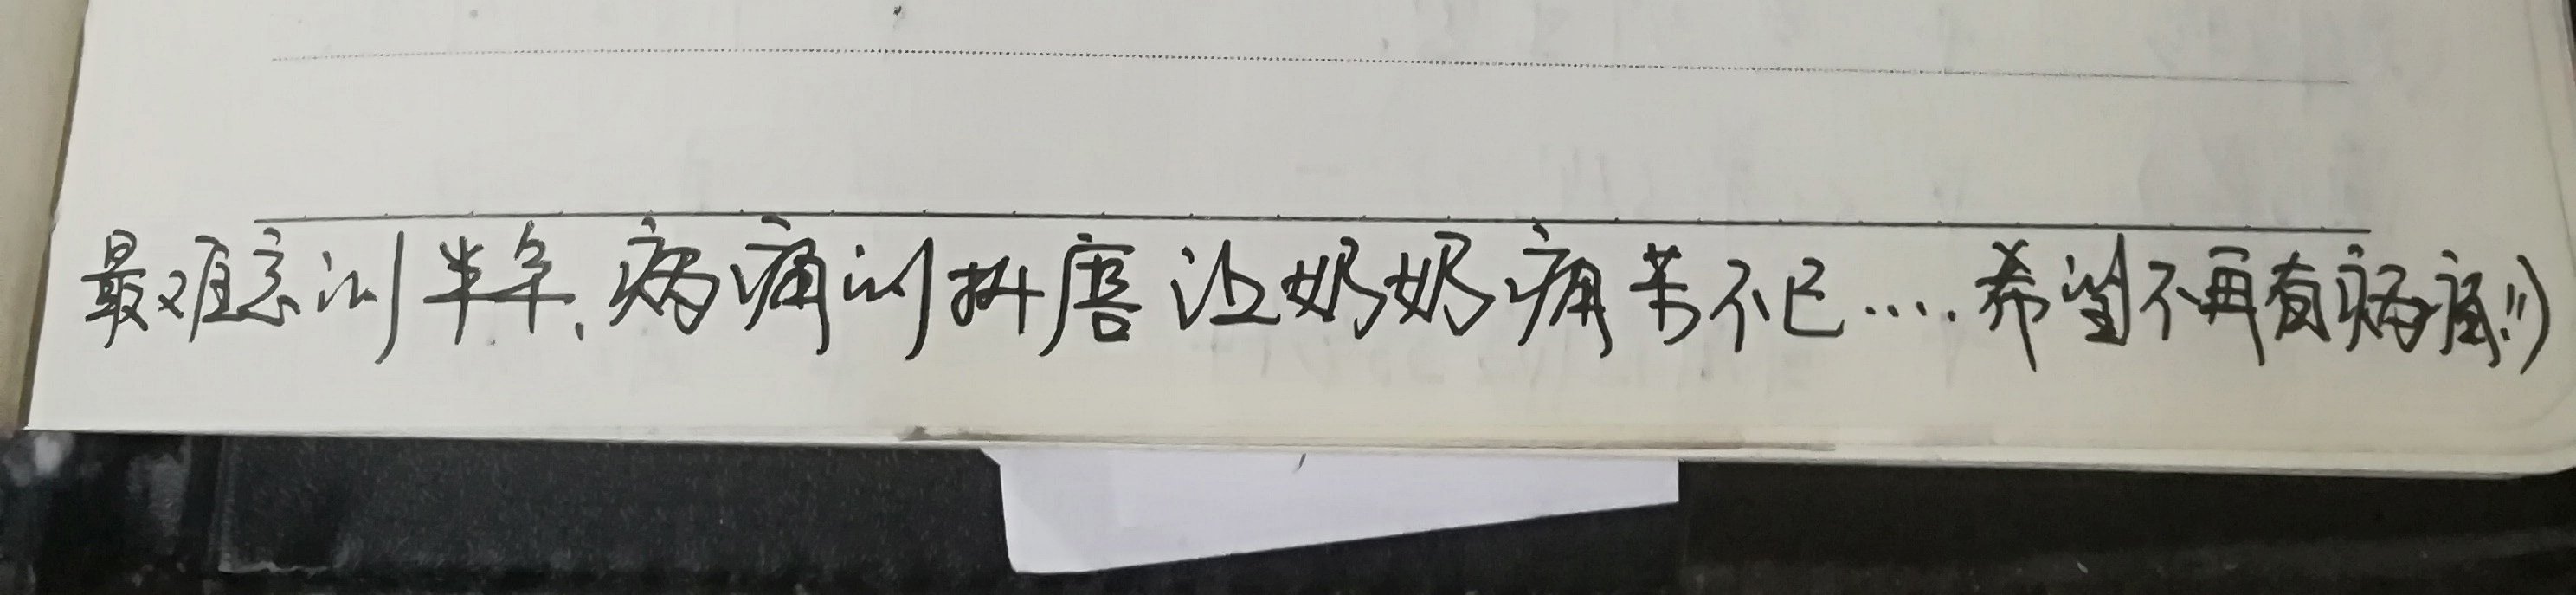 最难忘的半年，病痛的折磨让奶奶痛苦不已....希望不再有病痛!!)